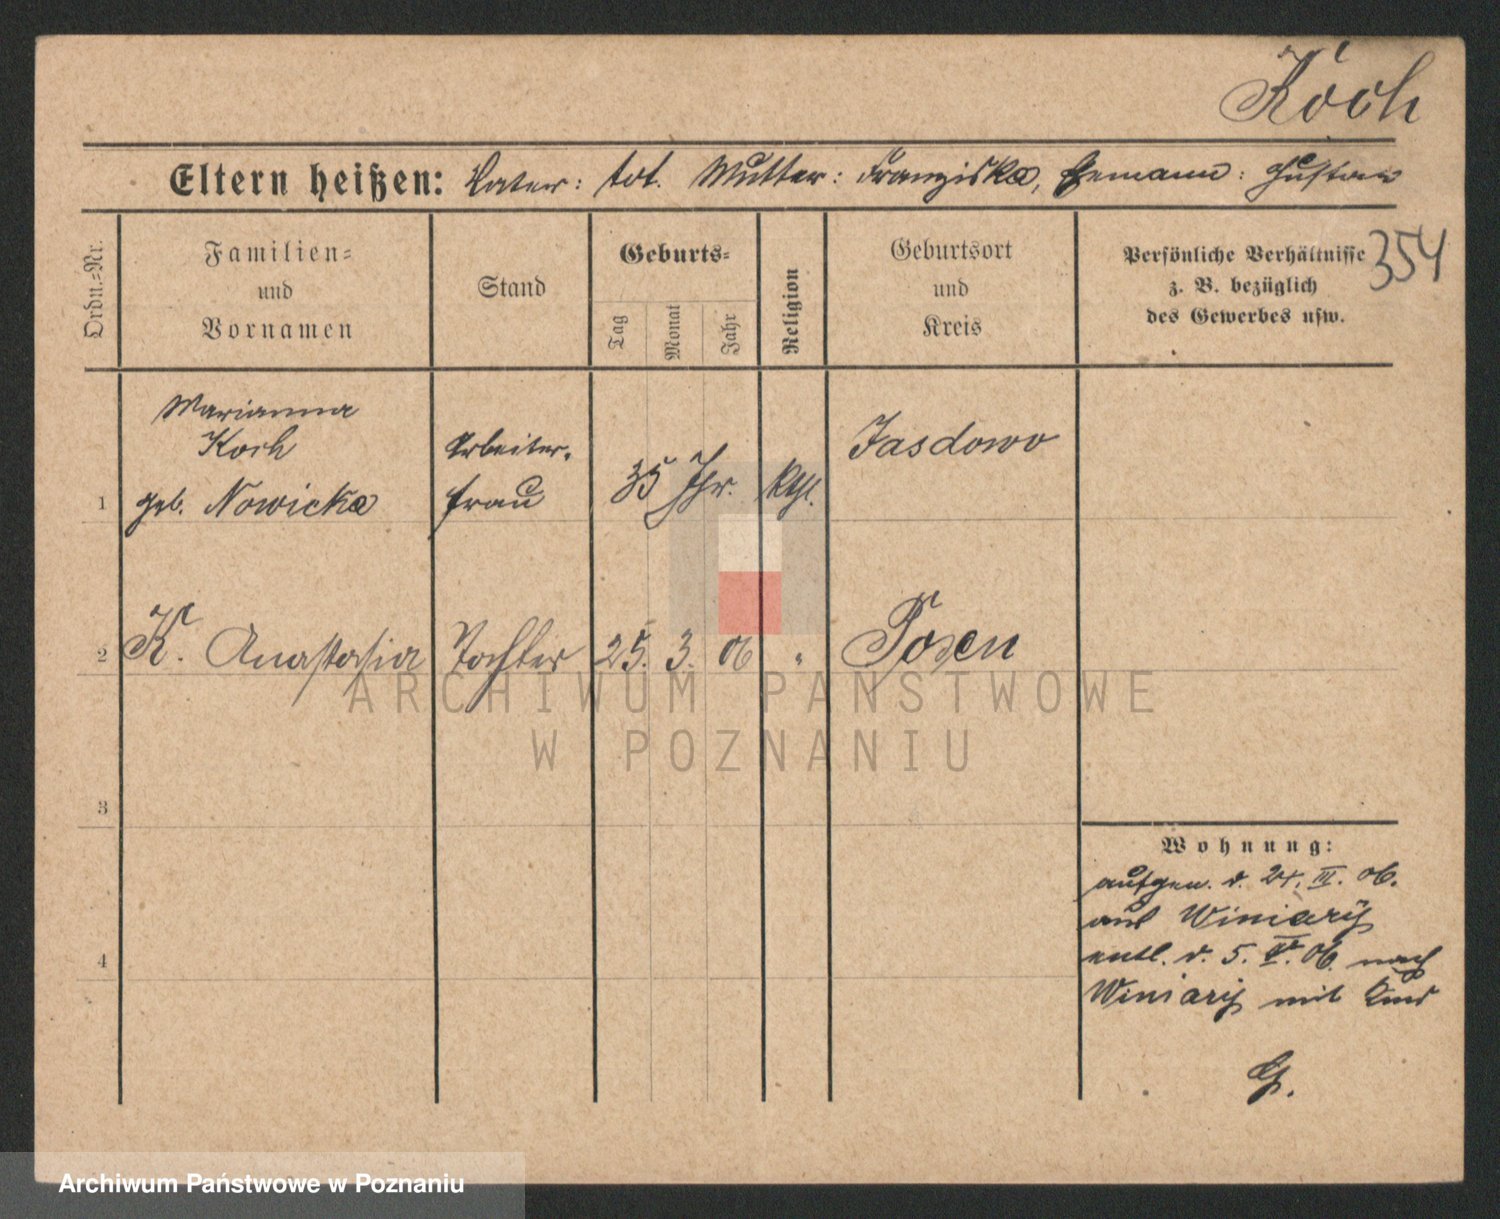 Koch
Eltern heißen: Vater: tot. Mutter: Franziska, Ehemann: Gustav
354
Ordn.-Nr.
Familien-
und
Vornamen
Stand
Geburts-
Tag
Monat
Jahr
Religion
Geburtsort
und
Kreis
Persönliche Verhältnisse
z. B. bezüglich
des Gewerbes usw.
Marianna
Koch
1 geb. Nowicka
Arbeiter-
frau
35 Jhr. kth.
Jasdowo
2 K. Anastasia Tochter 25. 3. 06 " Posen
ARCHIWUM PAŃSTWOWE
W POZNANIU
3
4
Wohnung:
aufgen. d. 24. III. 06.
aus Winiary
entl. d. 5. IV. 06. nach
Winiary mit Kind
G.
Archiwum Państwowe w Poznaniu